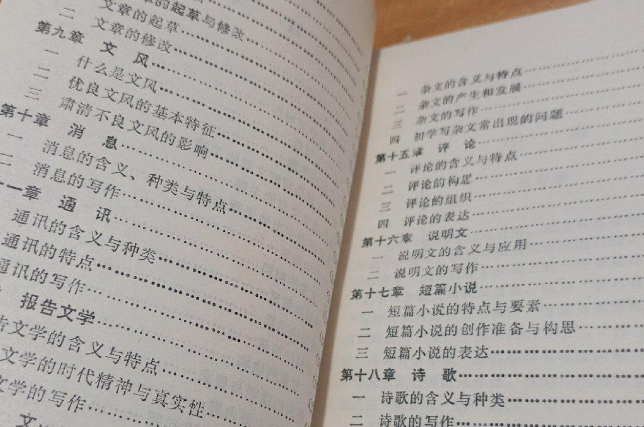 的起草与修改
一 文章的起草
二 文章的修改
第九章 文风
一 什么是文风
二 优良文风的基本特征
三 肃清不良文风的影响
第十章 消息
一 消息的含义、种类与特点
二 消息的写作
一章 通讯
通讯的含义与种类
通讯的特点
通讯的写作
报告文学
告文学的含义与特点
文学的时代精神与真实性
文学的写作
文
一 杂文的含义与特点
二 杂文的产生和发展
三 杂文的写作
四 初学写杂文常出现的问题
第十五章 评论
一 评论的含义与特点
二 评论的构思
三 评论的组织
四 评论的表达
第十六章 说明文
一 说明文的含义与应用
二 说明文的写作
第十七章 短篇小说
一 短篇小说的特点与要素
二 短篇小说的创作准备与构思
三 短篇小说的表达
第十八章 诗歌
一 诗歌的含义与种类
二 诗歌的写作